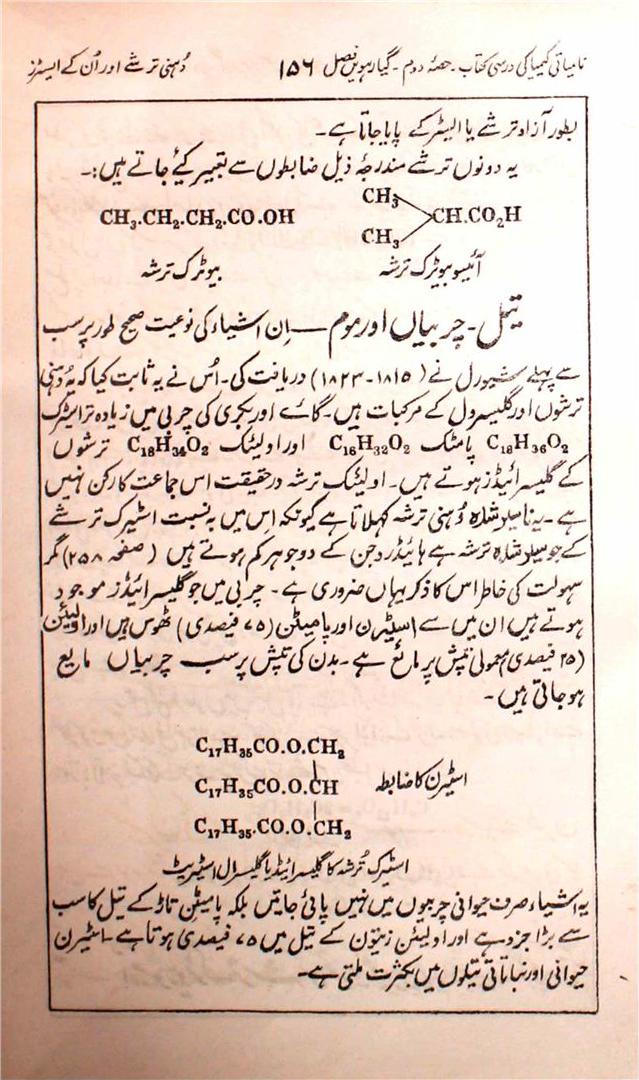 نامیاتی کیمیا کی درسی کتاب۔ حصۂ دوم۔ گیارہویں فصل ۱۵۶ دُہنی ترشے اور اُن کے ایسٹرز
بطور آزاد ترشے یا ایسٹر کے پایا جاتا ہے۔
یہ دونوں ترشے مندرجۂ ذیل ضابطوں سے تعبیر کیٔے جاتے ہیں:۔
CH₃
CH₃.CH₂.CH₂.CO.OH CH.CO₂H
CH₃
بیوٹرک ترشہ آئیسو بیوٹرک ترشہ
تیل۔ چربیاں اور موم —— اِن اشیاء کی نوعیت صحیح طور پر سب
سے پہلے شیورل نے (۱۸۱۵-۱۸۲۳) دریافت کی۔ اُس نے یہ ثابت کیا کہ یہ دُہنی
ترشوں اور گلیسرول کے مرکبات ہیں۔ گائے اور بکری کی چربی میں زیادہ تر اسٹیرک
C₁₈H₃₆O₂ پامٹک C₁₆H₃₂O₂ اور اولیئک C₁₈H₃₄O₂ ترشوں
کے گلیسرائیڈز ہوتے ہیں۔ اولیئک ترشہ درحقیقت اس جماعت کا رکن نہیں
ہے۔ یہ ناسیر شدہ دُہنی ترشہ کہلاتا ہے کیونکہ اِس میں بہ نسبت اسٹیرک ترشے
کے جو سیر شدہ ترشہ ہے ہائیڈروجن کے دو جوہر کم ہوتے ہیں (صفحہ ۲۵۸) مگر
سہولت کی خاطر اس کا ذکر یہاں ضروری ہے۔ چربی میں جو گلیسرائیڈز موجود
ہوتے ہیں ان میں سے اسٹیرن اور پامیٹن (۷۵ فیصدی) ٹھوس ہیں اور اولیئن
(۲۵ فیصدی) معمولی تپش پر مائع ہے۔ بدن کی تپش پر سب چربیاں مایع
ہو جاتی ہیں۔
C₁₇H₃₅CO.O.CH₂
C₁₇H₃₅CO.O.CH اسٹیرن کا ضابطہ
C₁₇H₃₅.CO.O.CH₂
اسٹیرک تُرشہ کا گلیسرائیڈ یا گلیسرال اسٹیریٹ
یہ اشیاء صرف حیوانی چربیوں میں نہیں پائی جاتیں بلکہ پامیٹن تاڑ کے تیل کا سب
سے بڑا جزو ہے اور اولیئن زیتون کے تیل میں ۷۵ فیصدی ہوتا ہے۔ اسٹیرن
حیوانی اور نباتاتی تیلوں میں بکثرت ملتی ہے۔